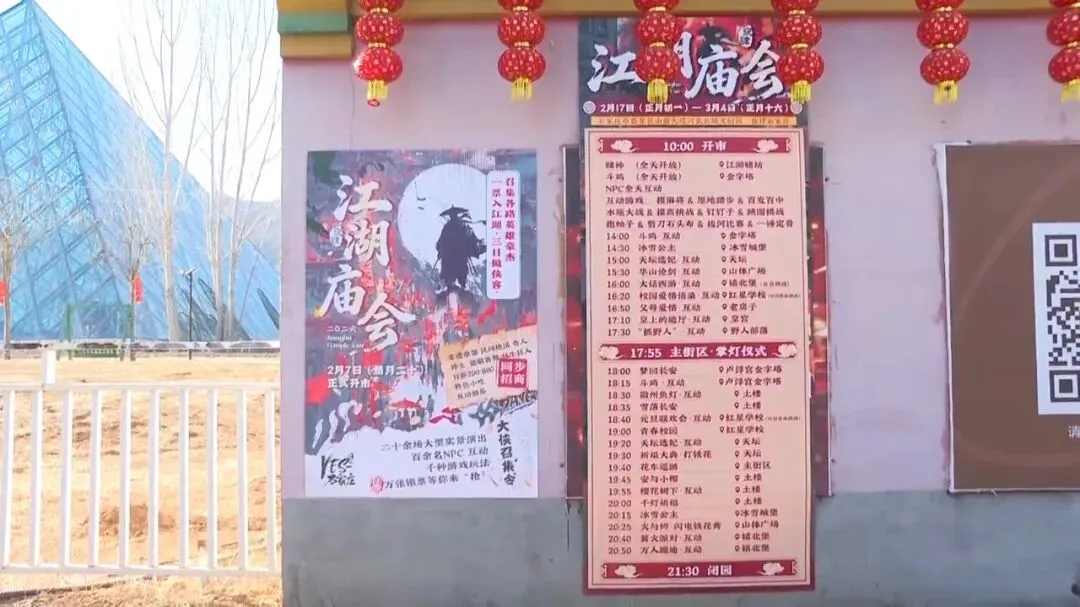 江湖庙会
召集各路英雄豪杰
一票入江湖·三日做侠客·
二〇二六
2月7日（腊月二十）
正式开市
同步
招商
特色小吃
互动游乐
大侠召集令
二十余场大型实景演出
百余名NPC 互动
千种游戏玩法
万张银票等你来“抢”
江湖庙会
2月17日（正月初一）—3月4日（正月十六）
10:00 开市
赌神 （全天开放） 江湖赌坊
斗鸡 （全天开放） 金字塔
NPC全天互动
互动游戏： 摸麻将 & 原地踏步 & 百发百中
水瓶大战 & 摸高挑战 & 钉钉子 & 跳圈挑战
抱柚子 & 剪刀石头布 & 拔河比赛 & 一锤定音
14:00 斗鸡·互动 金字塔
14:30 冰雪公主 冰雪城堡
15:00 天坛选妃·互动 天坛
15:30 华山论剑·互动 山体广场
16:00 大话西游·互动 镇北堡
16:20 校园爱情语录·互动 红星学校
16:50 父母爱情·互动 老房子
17:10 皇上的迪厅·互动 皇宫
17:30 “抓野人”·互动 野人部落
17:55 主街区·掌灯仪式
18:00 梦回长安 卢浮宫金字塔
18:15 斗鸡·互动 卢浮宫金字塔
18:30 徽州鱼灯·互动 土楼
18:35 雪落长安 土楼
18:40 元旦联欢会·互动 红星学校
19:00 青春校园 红星学校
19:20 天坛选妃·互动 天坛
19:30 祈福大典·打铁花 天坛
19:40 花车巡游 主街区
19:45 安与小樱 土楼
19:55 樱花树下·互动 土楼
20:00 千灯祈福 土楼
20:15 冰雪公主 冰雪城堡
20:25 火与烬·闪电铁花秀 山体广场
20:40 篝火派对·互动 镇北堡
20:50 万人蹦迪·互动 镇北堡
21:30 闭园